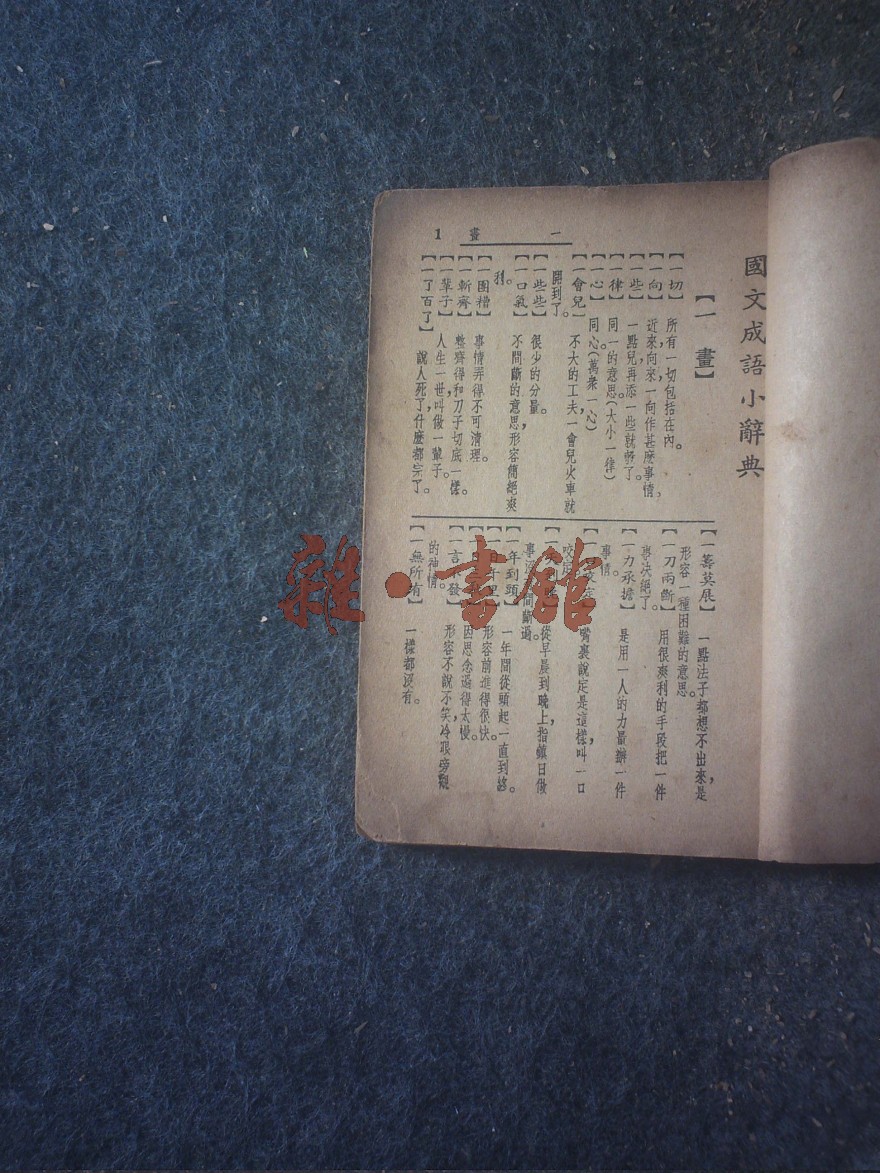 國文成語小辭典
【一畫】
【一切】 所有一切包括在內。
【一向】 近來,向來一向作甚麽事情,
【一些】 一點兒,再添一些就够了。
【一律】 同一的意思。(大小一律)
【一心】 同心(萬衆一心)
【一會兒】 不大的工夫一會兒火車就
開到了。
【一些些】 很少的分量。
【一口氣】 不間斷的意思,形容簡絕爽
利。
【一團糟】 事情弄得不可清理。
【一斬齊】 整齊得和刀子切底一樣。
【一輩子】 人生一世,叫做一輩子。
【一了百了】 說人死了,什麽都完了。
【一籌莫展】 一點法子都想不出來,是
形容一種困難的意思。
【一刀兩斷】 用很爽利的手段把一件
事決絕了。
【一力承擔】 是用一人的力量辦一件
事情。
嘴裏說定是這樣,叫一口
咬定
從早晨到晚上指鎮日做
事沒 間斷過。
【一年到頭】 一年間從頭起一直到終。
【一日千里】 形容前進得很快。
因思念過得太慢。
【一言不發】 形容不說不笑,冷眼旁觀
的神情。
【一無所有】 一樣都沒有。
一畫
1
雜·書館